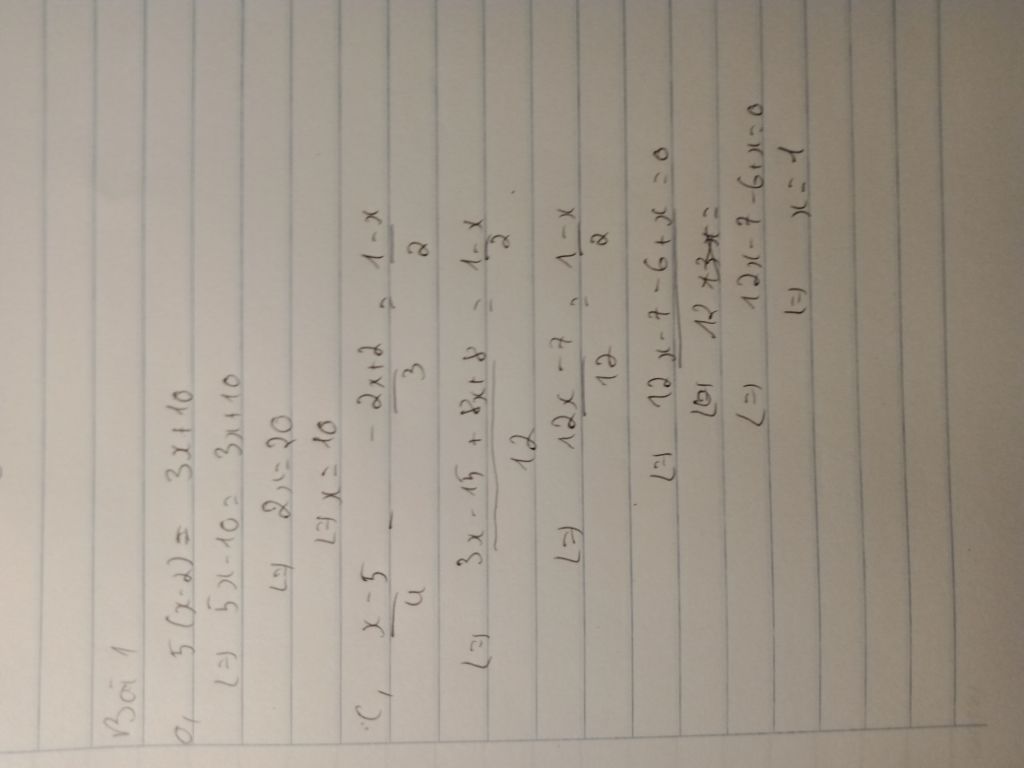 Bài 1
a, 5(x-2) = 3x+10
<=> 5x-10 = 3x+10
<=> 2x=20
<=> x=10
c, x-5/4 - - 2x+2/3 = 1-x/2
<=> 3x-15+8x+8/12 = 1-x/2
<=> 12x-7/12 = 1-x/2
<=> 12x-7-6+x=0
<=> 12x-7-6+x=0
<=> x=1